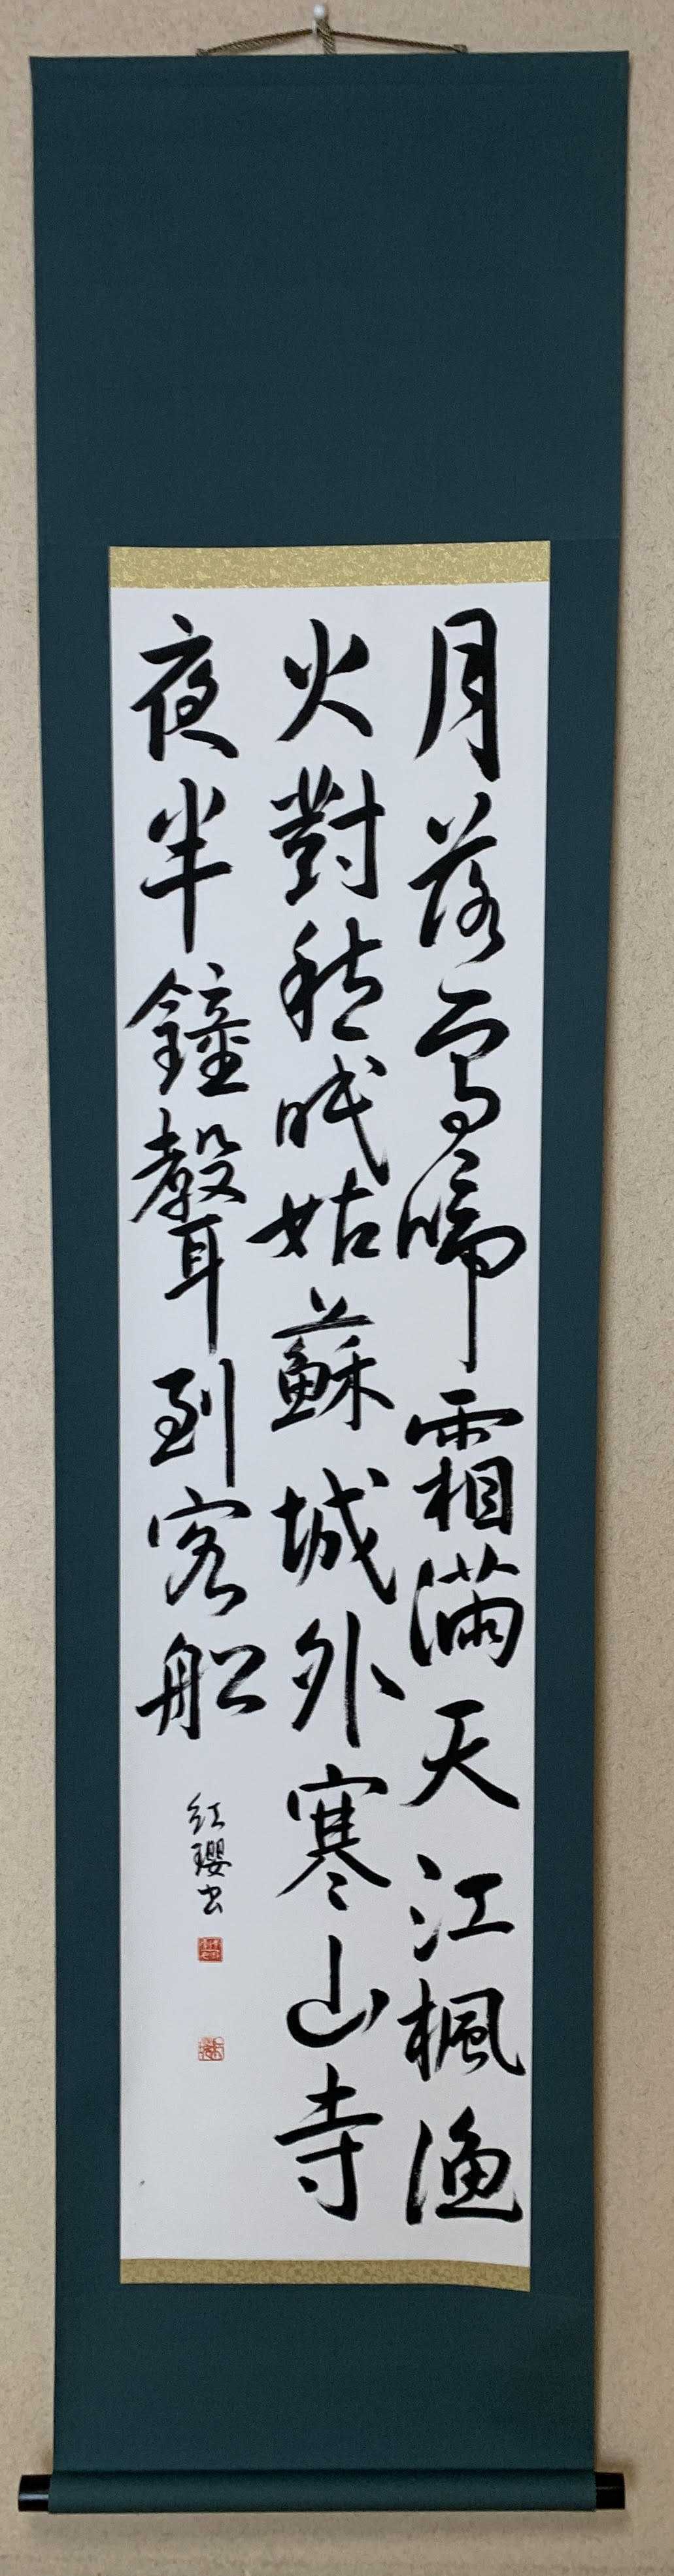 月落烏啼霜滿天江楓漁
火對愁眠姑蘇城外寒山寺
夜半鐘聲到客船
紅瓔書